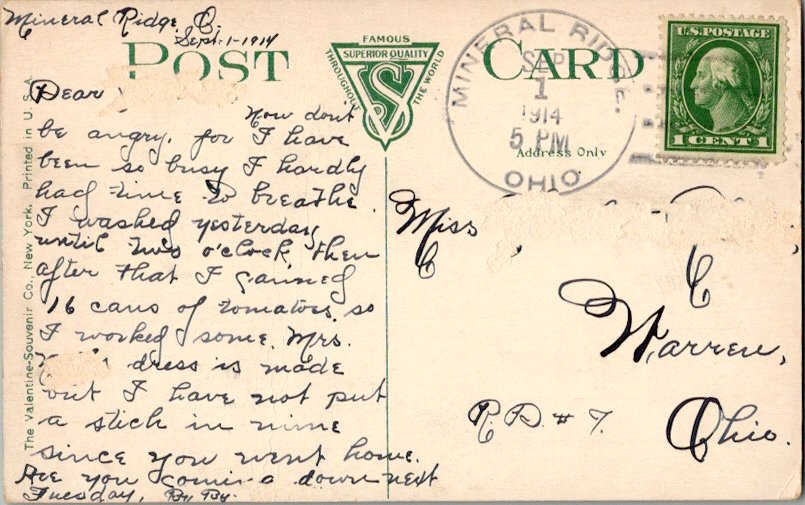 Mineral Ridge, O.
Sept-1-1914
POST CARD
FAMOUS
SUPERIOR QUALITY
THROUGHOUT THE WORLD
VS
MINERAL RIDGE.
SEP
1
1914
5 PM
OHIO
U.S. POSTAGE
1 CENT 1
Address Only
Dear
Now don't
be angry, for I have
been so busy I hardly
had time to breathe.
I washed yesterday
until two o'clock then
after that I canned
16 cans of tomatoes, so
I worked some. Mrs.
dress is made
but I have not put
a stick in mine
since you went home.
Are you coming down next
Tuesday, By By.
Miss
Warren,
R.D. # 7. Ohio.
The Valentine-Souvenir Co., New York. Printed in U.S.A.